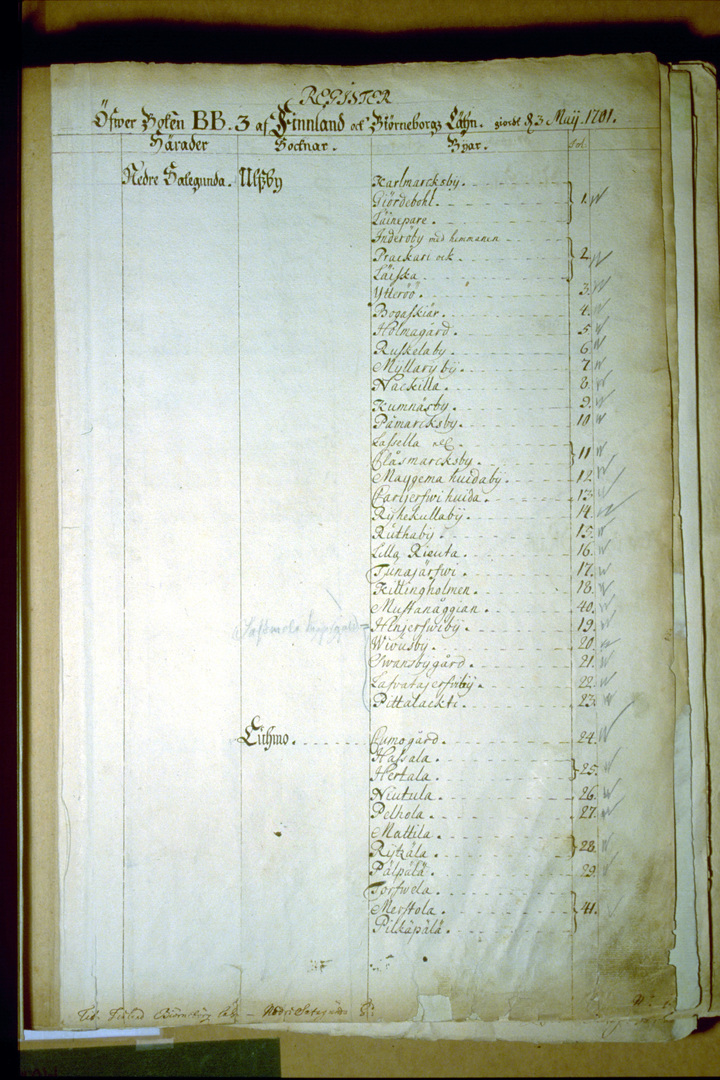 REGISTER
Öfwer Boken BB. 3 af Finnland och Biörneborgs Lähn. giordt d. 3 Maij. 1701.
Härader Sochnar. Byar. fol.
Nedre Sategunda. Ulfsby Karlmarcksby.
Giördebohl. 1.
Läinepare.
Inderöby med hemmanen
Prackari och 2.
Läiska
Ytteröö. 3.
Bogaskiär. 4.
Holmagård. 5.
Ruskelaby. 6.
Myllaryby. 7.
Nackilla. 8.
Kumnäsby. 9.
Påmarcksby. 10.
Lassella 
Clåsmarcksby. 11.
Maygema huidaby. 12.
Carljerfwi huida. 13.
Ryhekullabÿ. 14.
Ruthabÿ. 15.
Lilla Rieuta. 16.
Tunajärfwi. 17.
Killingholmen. 18.
Mustanäggian. 40.
Hinjerfwibÿ. 19.
Wivusby. 20.
Swansbygård. 21.
Lafvatajerfwibÿ. 22.
Pittalackti. 23.
Euhmo. Cumogård. 24.
Hassala.
Hertala. 25.
Niutula. 26.
Pelhola. 27.
Mattila.
Rÿtzälä. 28.
Pälpälä. 29.
Torfwela.
Merstola. 41.
Pilkäpälä.